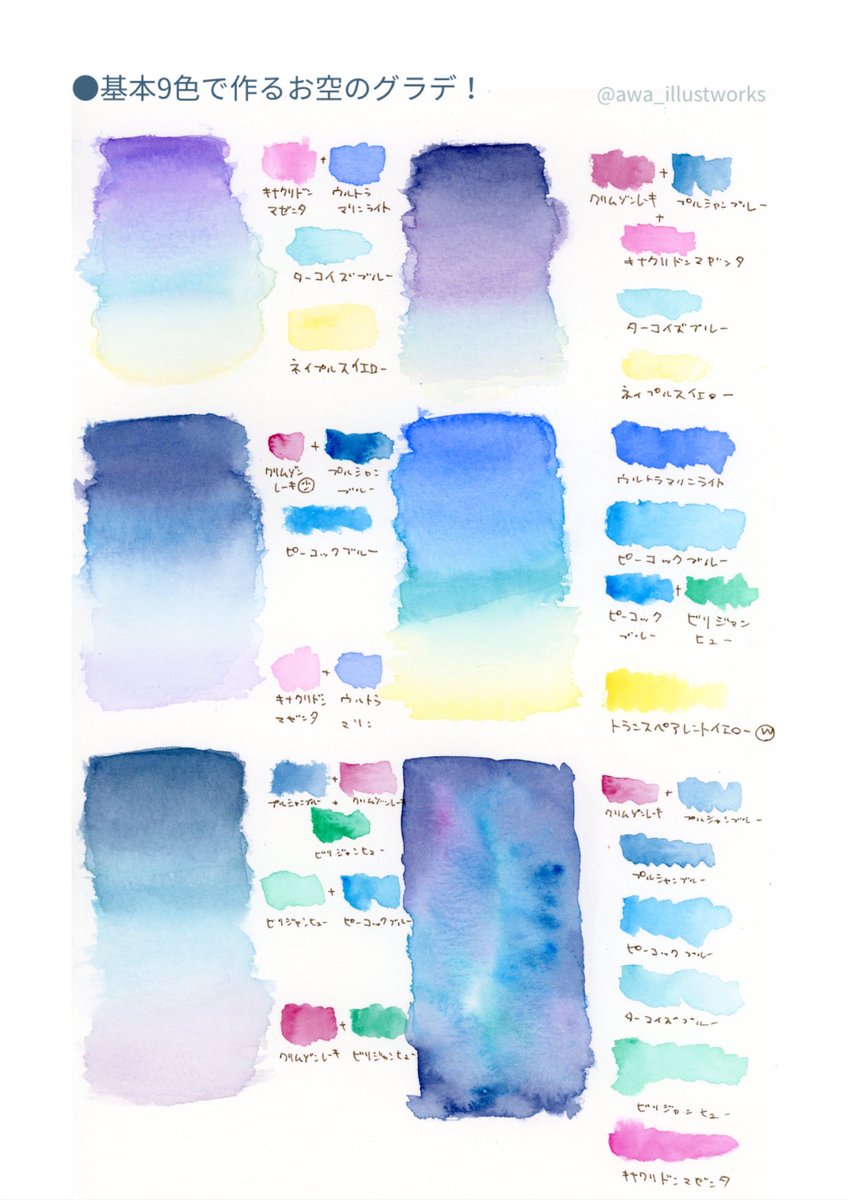 ●基本9色で作るお空のグラデ！
@awa_illustworks
キナクリドン
マゼンタ
+
ウルトラ
マリンライト
ターコイズブルー
ネイプルスイエロー
クリムゾンレーキ
+
プルシャンブルー
+
キナクリドンマゼンタ
ターコイズブルー
ネイプルスイエロー
クリムゾン
レーキ 少
+
プルシャン
ブルー
ピーコックブルー
キナクリドン
マゼンタ
+
ウルトラ
マリン
ウルトラマリンライト
ピーコックブルー
ピーコック
ブルー
+
ビリジャン
ヒュー
トランスペアレントイエロー W
プルシャンブルー
+
クリムゾンレーキ
+
ビリジャンヒュー
ビリジャンヒュー
+
ピーコックブルー
クリムゾンレーキ
+
ビリジャンヒュー
クリムゾンレーキ
+
プルシャンブルー
プルシャンブルー
ピーコックブルー
ターコイズブルー
ビリジャンヒュー
キナクリドンマゼンタ